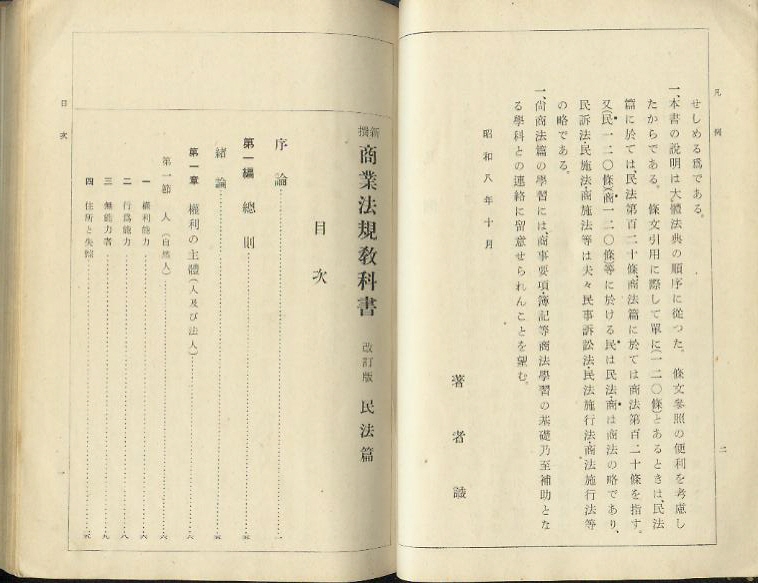 凡例
二
せしめる爲である。
一、本書の説明は大體法典の順序に從つた。條文參照の便利を考慮し
たからである。條文引用に際して單に(一二〇條)とあるときは、民法
篇に於ては、民法第百二十條、商法篇に於ては商法第百二十條を指す。
又(民一二〇條)(商一二〇條)等に於ける民は民法、商は商法の略であり、
民訴法・民施法・商施法等は夫々民事訴訟法・民法施行法・商法施行法等
の略である。
一、尚商法篇の學習には、商事要項・簿記等商法學習の基礎乃至補助とな
る學科との連絡に留意せられんことを望む。
昭和八年十月
著者識
新撰 商業法規教科書 改訂版 民法篇
目次
序論……一
第一編 總則……五
緒論……五
第一章 權利の主體(人及び法人)……六
第一節 人(自然人)……六
一 權利能力……六
二 行爲能力……八
三 無能力者……九
四 住所と失踪……一五
目次
一